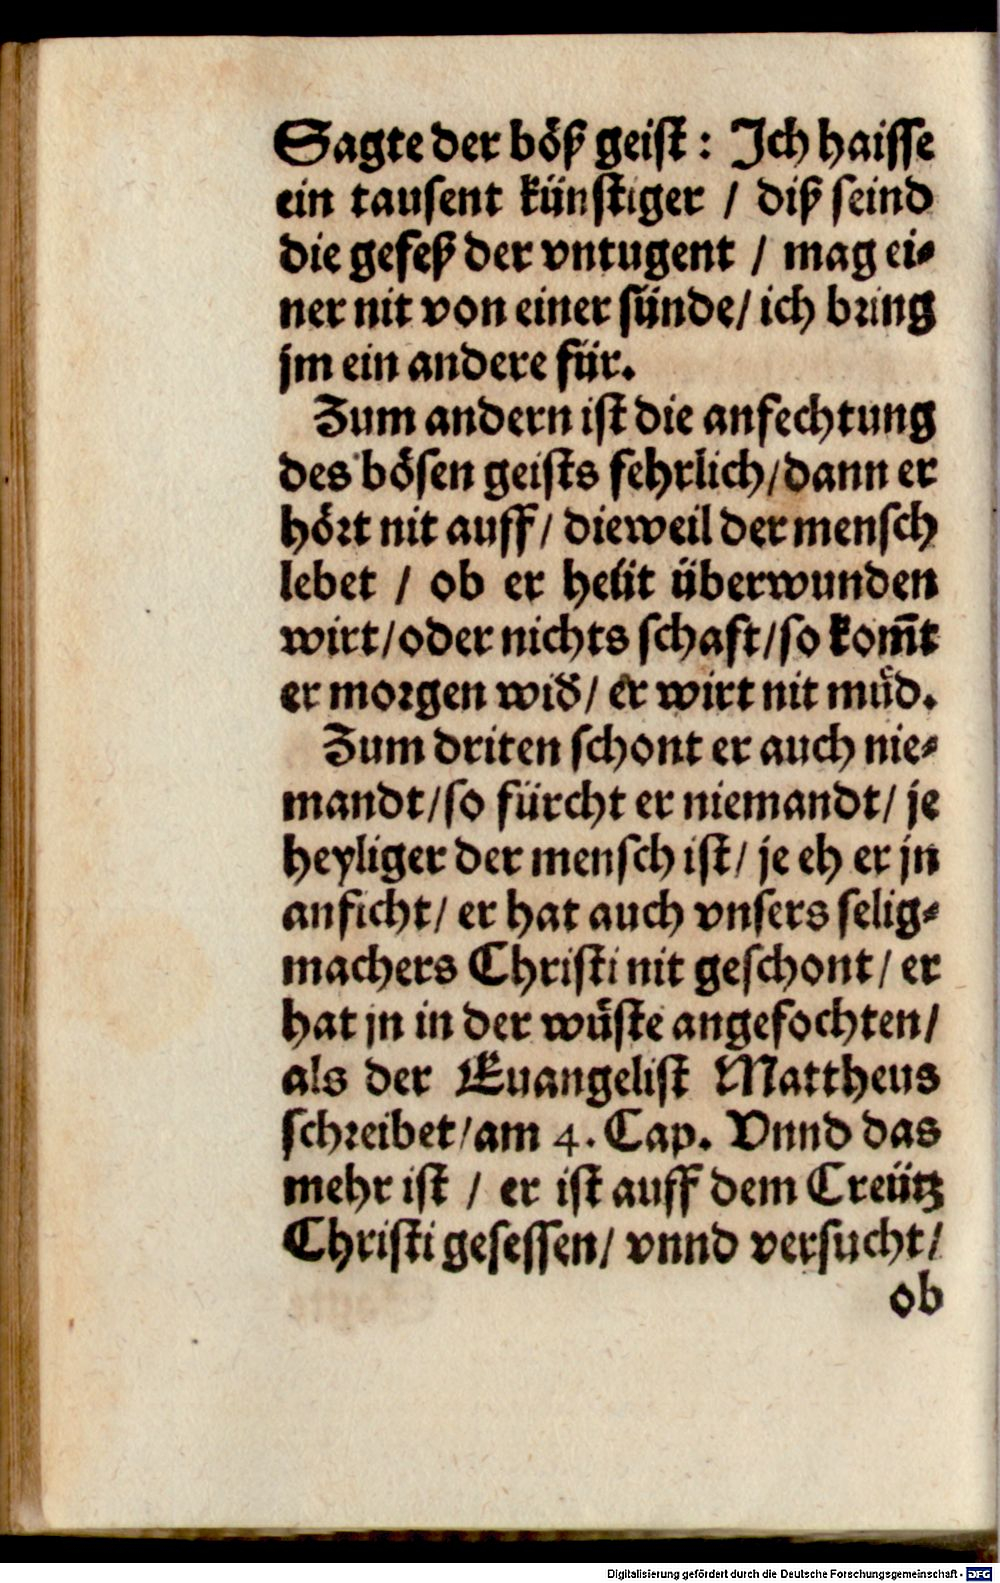 Sagte der böß geist: Ich haisse
ein tausent künstiger / diß seind
die gefeß der vntugent / mag ei⸗
ner nit von einer sünde/ ich bring
jm ein andere für.
Zum andern ist die anfechtung
des bösen geists fehrlich/dann er
hört nit auff/ dieweil der mensch
lebet / ob er heüt überwunden
wirt/oder nichts schaft/so kom̃t
er morgen wid̕/ er wirt nit müd.
Zum driten schont er auch nie⸗
mandt/so fürcht er niemandt/ je
heyliger der mensch ist/ je eh er jn
anficht/ er hat auch vnsers selig⸗
machers Christi nit geschont/ er
hat jn in der wüste angefochten/
als der Euangelist Mattheus
schreibet/am 4. Cap. Vnnd das
mehr ist / er ist auff dem Creütz
Christi gesessen/ vnnd versucht/
ob
Digitalisierung gefördert durch die Deutsche Forschungsgemeinschaft - DFG